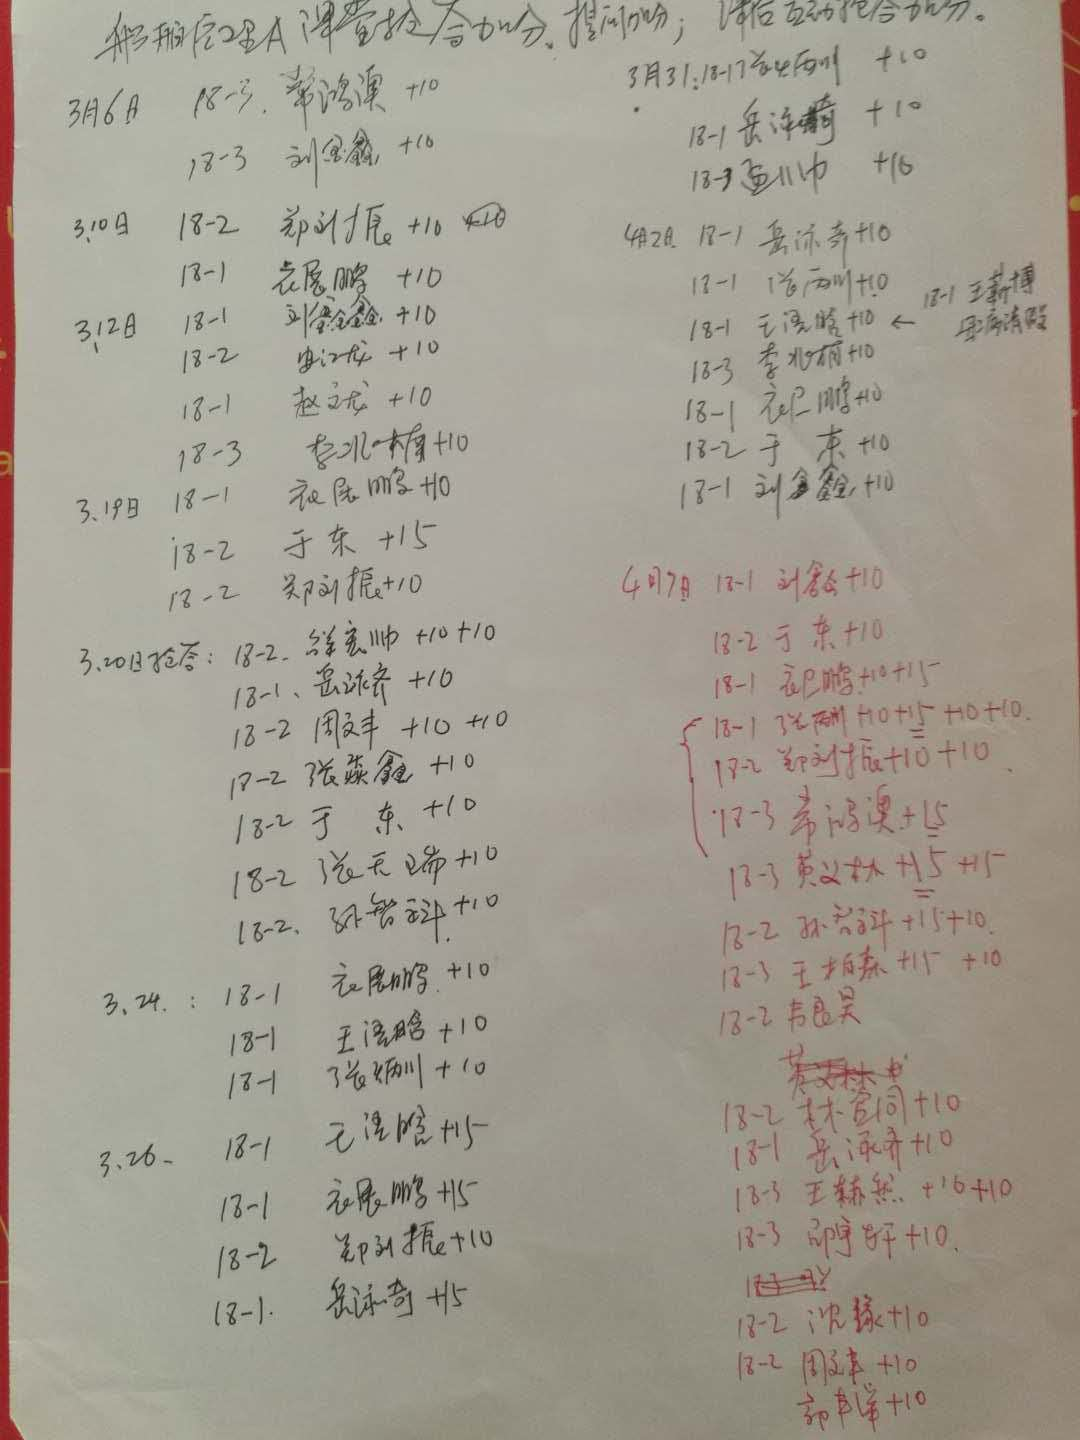 船舶原理A 课堂抢答加分、提问加分；课后互动抢答加分。
3月6日 18-3. 常鸿澳 +10
18-3 刘鑫鑫 +10
3.10日 18-2 郑刘振 +10
18-1 衣展鹏 +10
3.12日 18-1 刘鑫鑫 +10
18-2 龙 +10
18-1 赵文龙 +10
18-3 李兆楠 +10
3.19日 18-1 衣展鹏 +10
18-2 于东 +15
18-2 郑刘振 +10
3.20日抢答: 18-2. 宏帅 +10 +10
18-1、岳泳奇 +10
18-2 周文丰 +10 +10
18-2 张焱鑫 +10
18-2 于东 +10
18-2 张天瑞 +10
18-2. 孙智科 +10
3.24. : 18-1 衣展鹏 +10
18-1 王浯晗 +10
18-1 张炳川 +10
3.26- 18-1 王浯晗 +15
18-1 衣展鹏 +15
18-2 郑刘振 +10
18-1. 岳泳奇 +15
3月31: 18-1 张炳川 +10
18-1 岳泳奇 +10
18-3 孟川 +10
4月2日 18-1 岳泳奇 +10
18-1 张炳川 +10
18-1 王浯晗 +10 ← 18-1 王薪博
请假
18-3 李兆楠 +10
18-1 衣展鹏 +10
18-2 于东 +10
18-1 刘鑫鑫 +10
4月7日 18-1 刘鑫鑫 +10
18-2 于东 +10
18-1 衣展鹏 +10 +15
18-1 张炳川 +10 +15 +10 +10.
18-2 郑刘振 +10 +10
18-3 常鸿澳 +15
18-3 英文林 +15 +15
18-2 孙智科 +15 +10.
18-3 王柏森 +15 +10
18-2 韦良昊
18-2 林宣同 +10
18-1 岳泳奇 +10
18-3 王赫然 +10 +10
18-3 邵宇轩 +10.
18-2 沈 +10
18-2 周文丰 +10
郭丰 +10